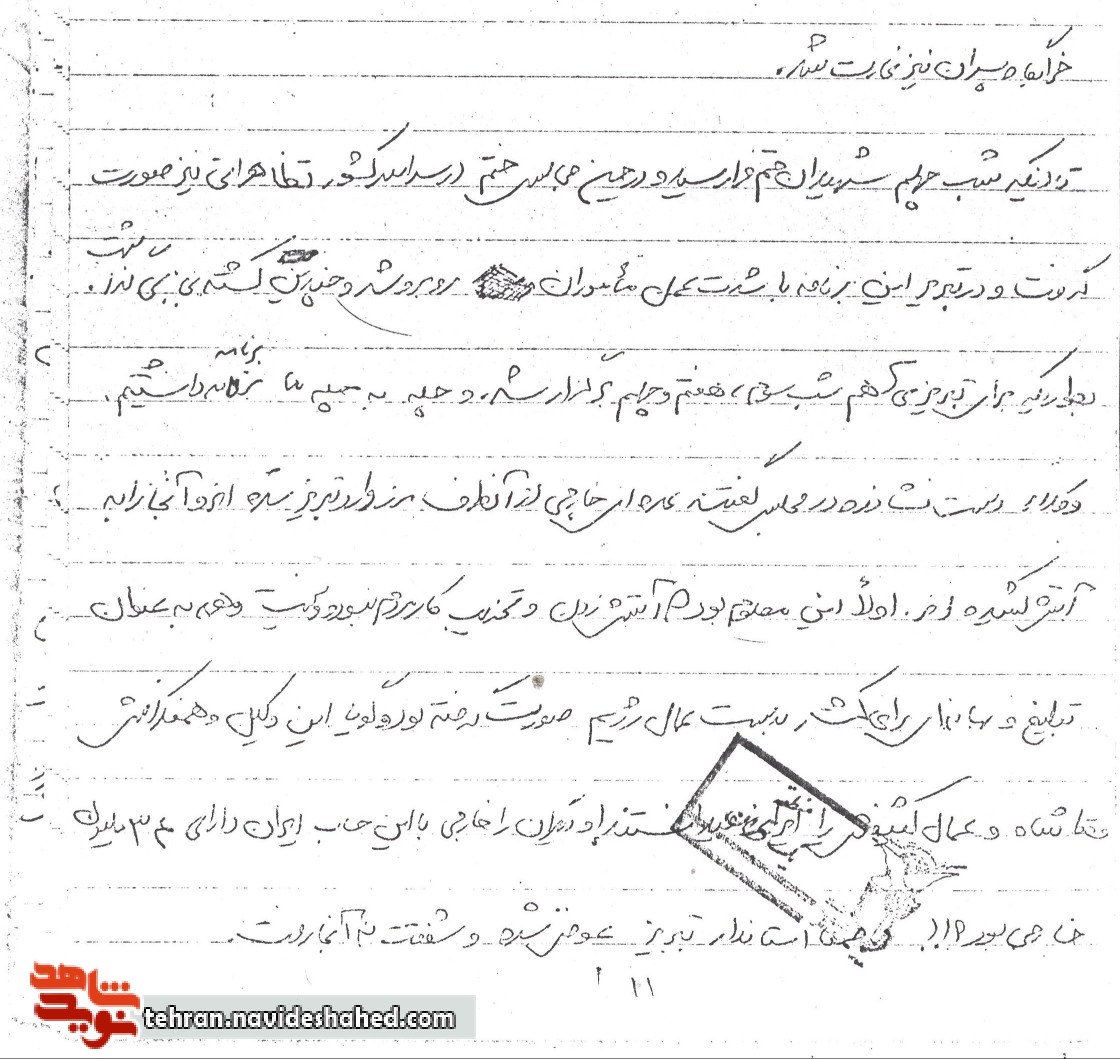 خوابگاه پسران نیز غارت شد.
تا اینکه شب چهلم شهیدان قم فرا رسید و در حین مجالس ختم در سراسر کشور تظاهراتی نیز صورت
گرفت و در تبریز این برنامه با شدت عمل مأموران روبرو شد و چندین کشته بی
بطوریکه برای تبریزی هم شب سوم، هفتم و چهلم برگزار شد و چله به چله ما برنامه داشتیم.
وکلاء دست نشانده در مجلس گفتند عده ای خارجی از آنطرف مرز وارد تبریز شده اند و آنجا را به
آتش کشیده اند. اولاً این معلوم بود آتش زدن و تخریب کار مردم نبود و نیست و همه به عنوان
تبلیغ و بهانه ای برای کشتار بدست عمال رژیم صورت گرفته بود و گویا این وکیل و همفکرانش
فقط شاه و عمال کثیفش را ایرانی و دیگران را خارجی با این حساب ایران دارای ۳۴ ملیون
خارجی بود؟!!! استاندار تبریز عوض شده و شفقت به آنجا رفت.
۱۱
شاهد
نوید
tehran.navideshahed.com